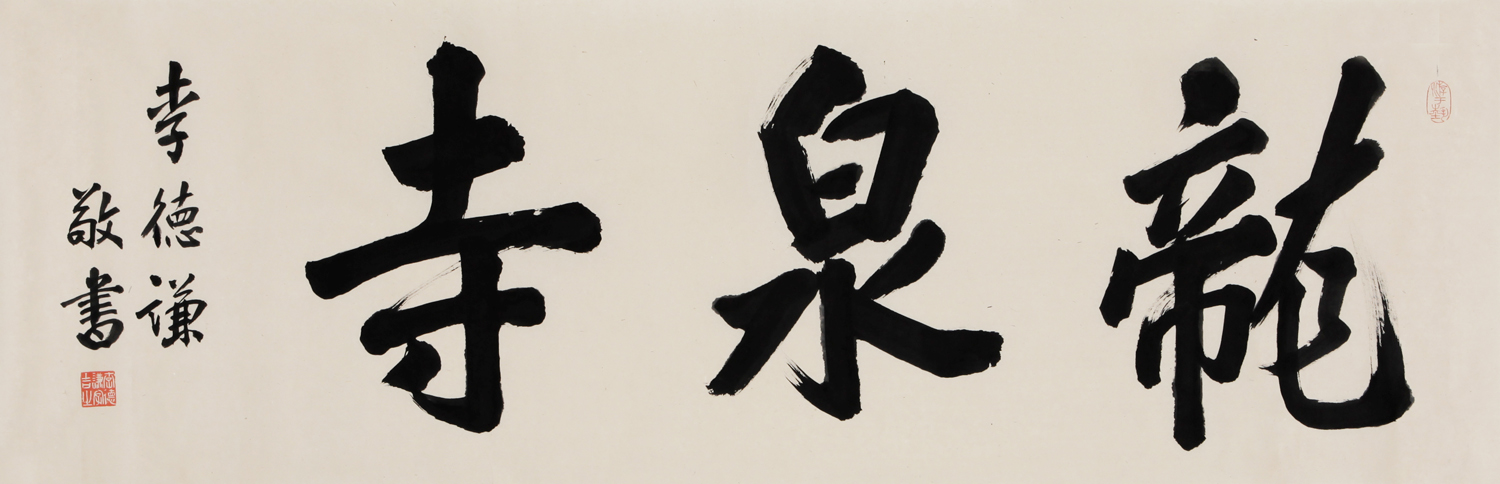 龍泉寺
李德谦
敬書